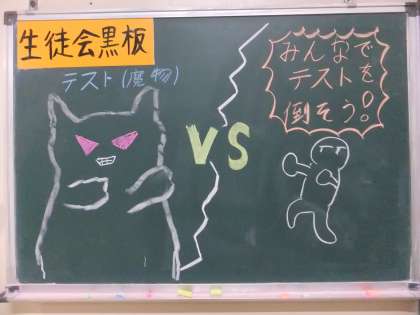 生徒会黒板
テスト(魔物)
VS
みんなで
テストを
倒そう!